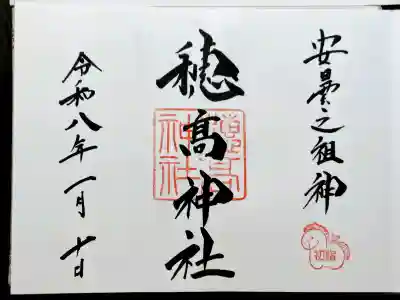 安曇之祖神
穂髙神社
穗高神社
令和八年一月十日